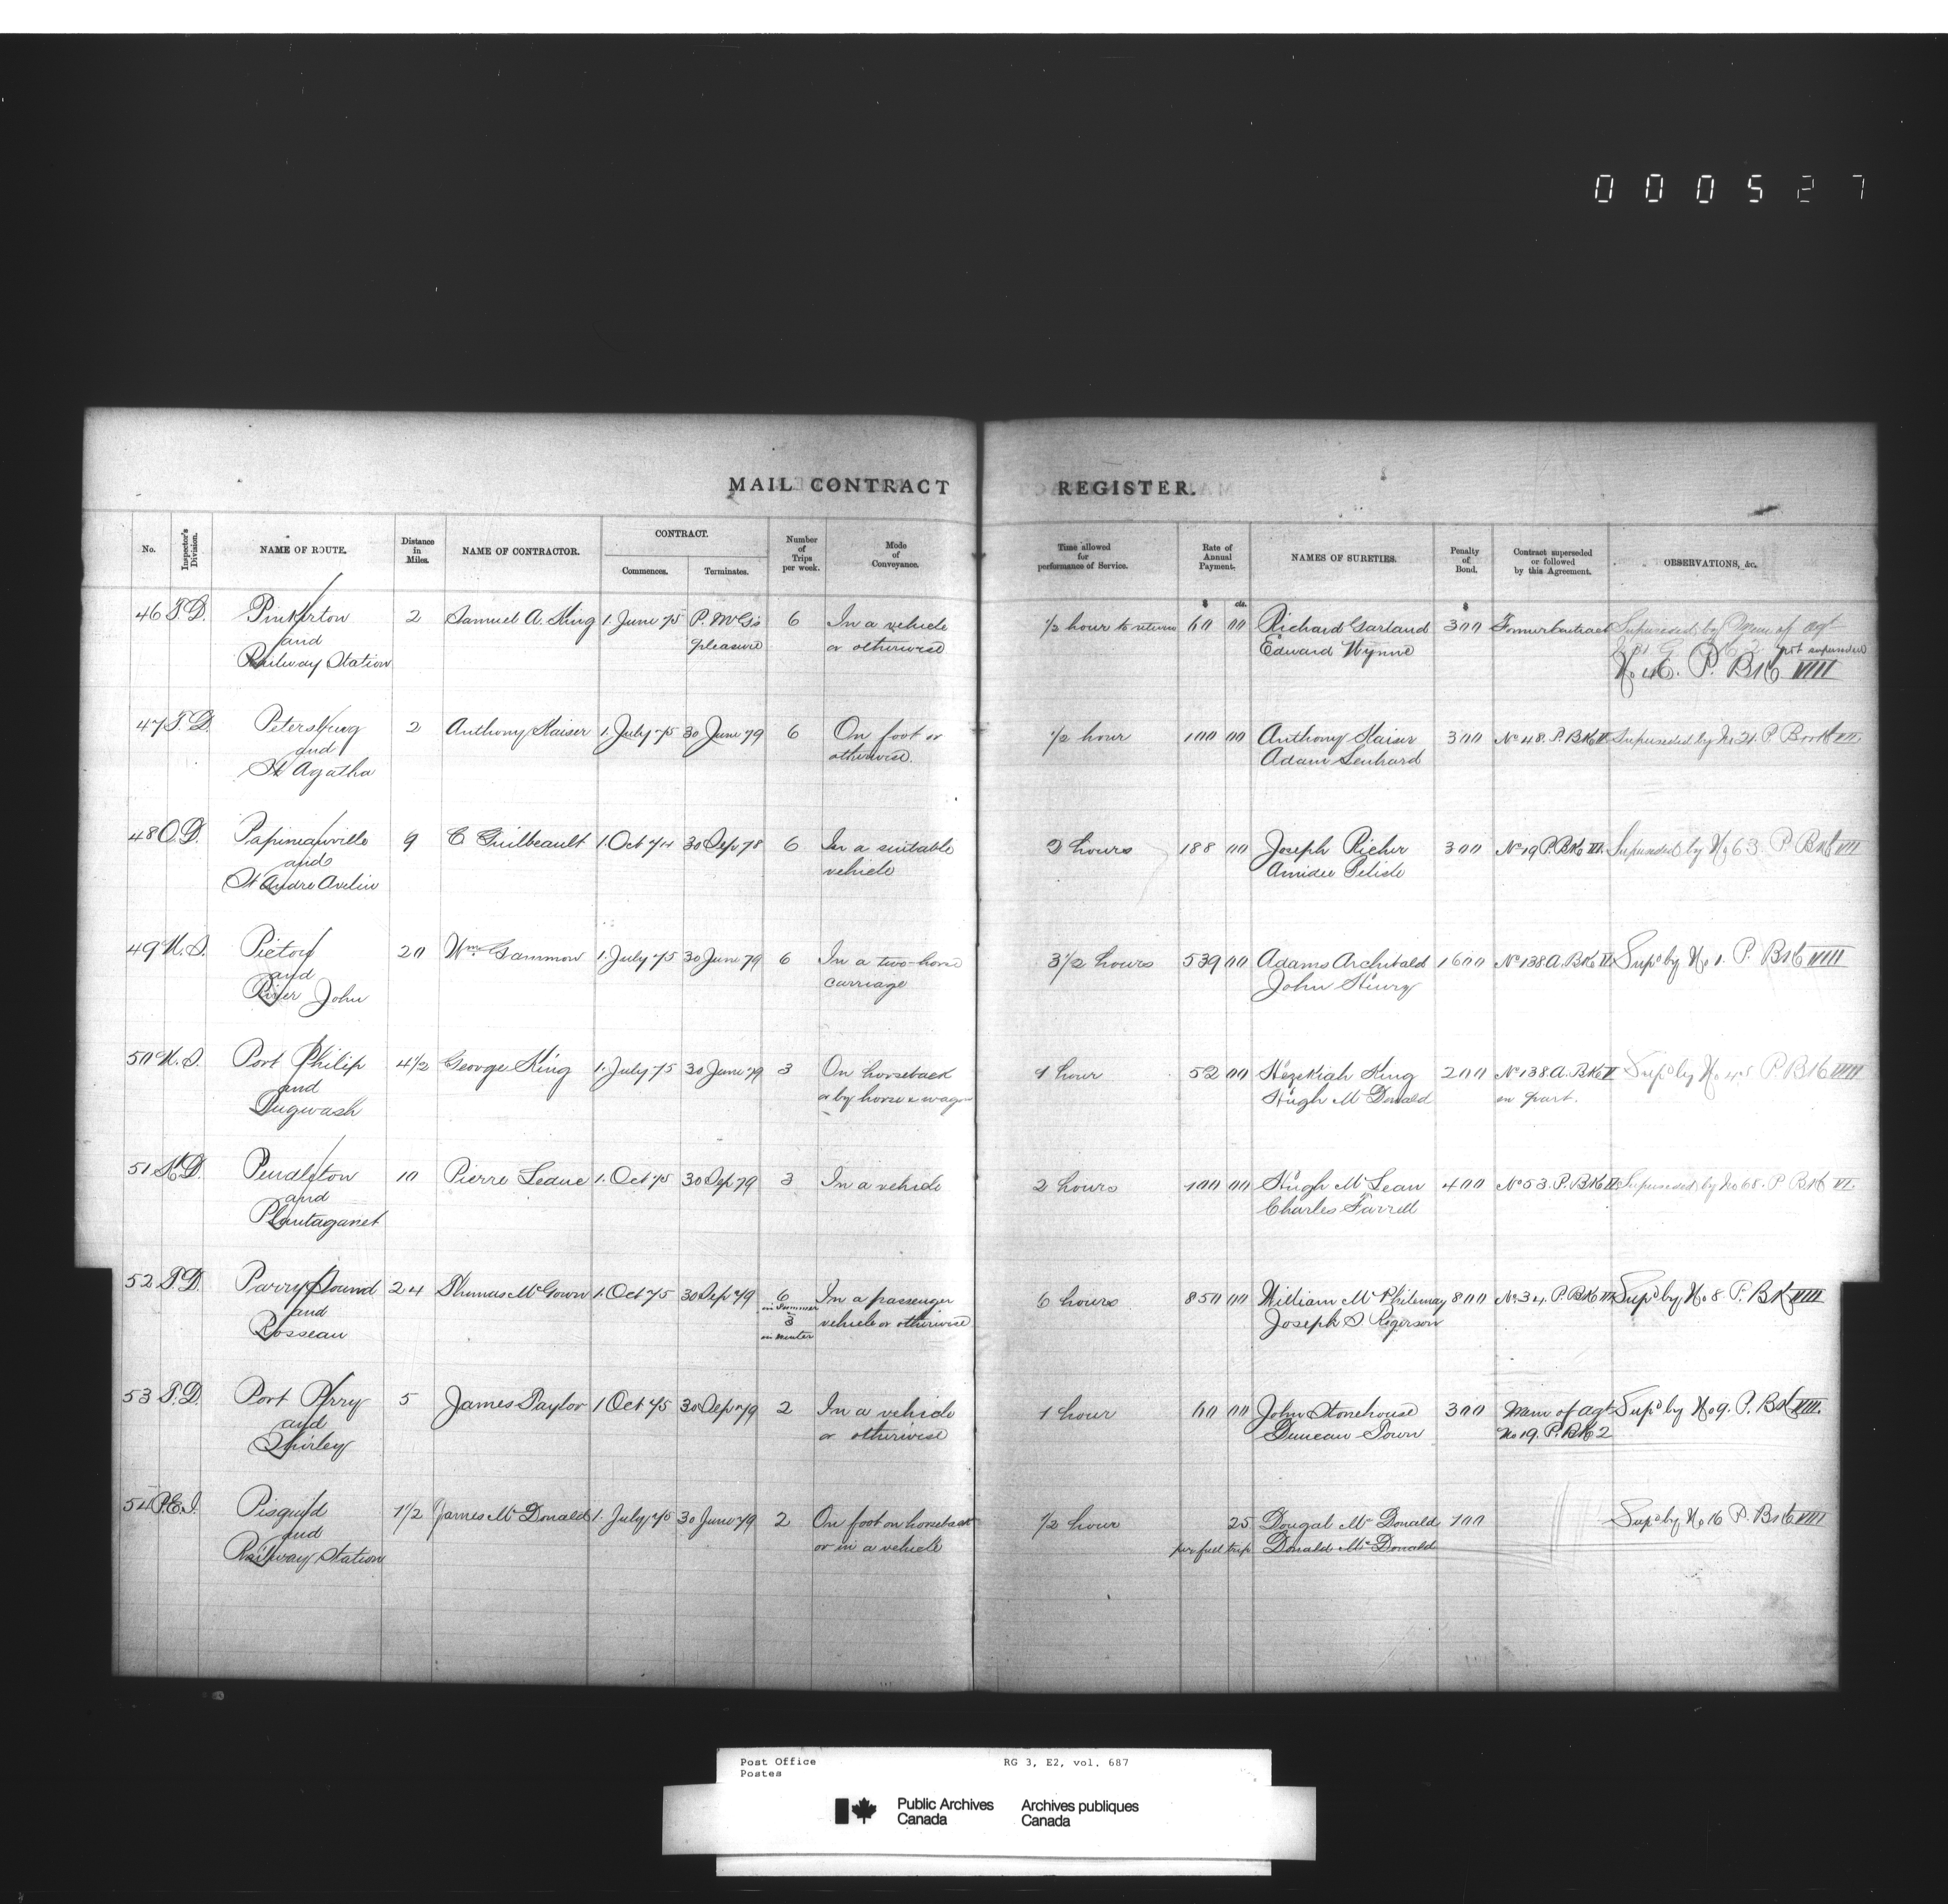 000527
MAIL CONTRACT REGISTER.
No. Inspector's Division. NAME OF ROUTE. Distance in Miles. NAME OF CONTRACTOR. CONTRACT. Commences. Terminates. Number of Trips per week. Mode of Conveyance. Time allowed for performance of Service. Rate of Annual Payment. NAMES OF SURETIES. Penalty of Bond. Contract superseded or followed by this Agreement. OBSERVATIONS, &c.
$ cts. $
46 T.D. Pinkerton 2 Samuel A. King 1. June 75 P.M.G's 6 In a vehicle 1/2 hour to return 60 00 Richard Garland 300 Former Contract Superseded by Mem of agt
and pleasure or otherwise Edward Wynne not superseded
Railway Station No 46. P. Bk VIII
47 T.D. Petersburg 2 Anthony Kaiser 1. July 75 30 June 79 6 On foot or 1/2 hour 100 00 Anthony Kaiser 300 No 48. P. Bk II Superseded by No 21. P Book VII
and otherwise. Adam Lenhard
St Agatha
48 O.D. Papineauville 9 C Guilbeault 1. Oct 74 30 Sep 78 6 In a suitable 2 hours 188 00 Joseph Richer 300 No 19 P. Bk VI. Superseded by No 63 P Bk VII
and vehicle Amidee Belisle
St Andre Avelin
49 N.S. Pictou 20 Wm Gammon 1. July 75 30 June 79 6 In a two-horse 3 1/2 hours 539 00 Adams Archibald 1600 No 138 A. Bk II Supd by No 1. P. Bk VIII
and carriage John Henry
River John
50 N.S. Port Philip 4 1/2 George King 1. July 75 30 June 79 3 On horseback 1 hour 52 00 Hezekiah King 200 No 138 A. Bk II Supd by No 45 P Bk VIII
and or by horse & wagon Hugh McDonald in part.
Pugwash
51 M.D. Pendleton 10 Pierre Leduc 1. Oct 75 30 Sep 79 3 In a vehicle 2 hours 100 00 Hugh McLean 400 No 53. P. Bk II Superseded by No 68. P Bk VI.
and Charles Farrell
Plantaganet
52 T.D. Parry Sound 24 Thomas McGown 1. Oct 75 30 Sep 79 6 In a passenger 6 hours 850 00 William McPhilemay 800 No 34. P. Bk III Supd by No 8. P. Bk VIII
and in summer 3 in winter vehicle or otherwise Joseph S Rogerson
Rosseau
53 T.D. Port Perry 5 James Taylor 1 Oct 75 30 Sep 79 2 In a vehicle 1 hour 60 00 John Stonehouse 300 Mem of agt Supd by No 9. P. Bk VIII.
and or otherwise Duncan Town No 19. P. Bk 2
Shirley
54 P.E.I. Pisquid 1 1/2 James McDonald 1. July 75 30 June 79 2 On foot on horseback 1/2 hour 25 Dougal McDonald 100 Supd by No 16 P. Bk VIII
and or in a vehicle per full trip Donald McDonald
Railway Station
Post Office RG 3, E2, vol. 687
Postes
Public Archives Archives publiques
Canada Canada